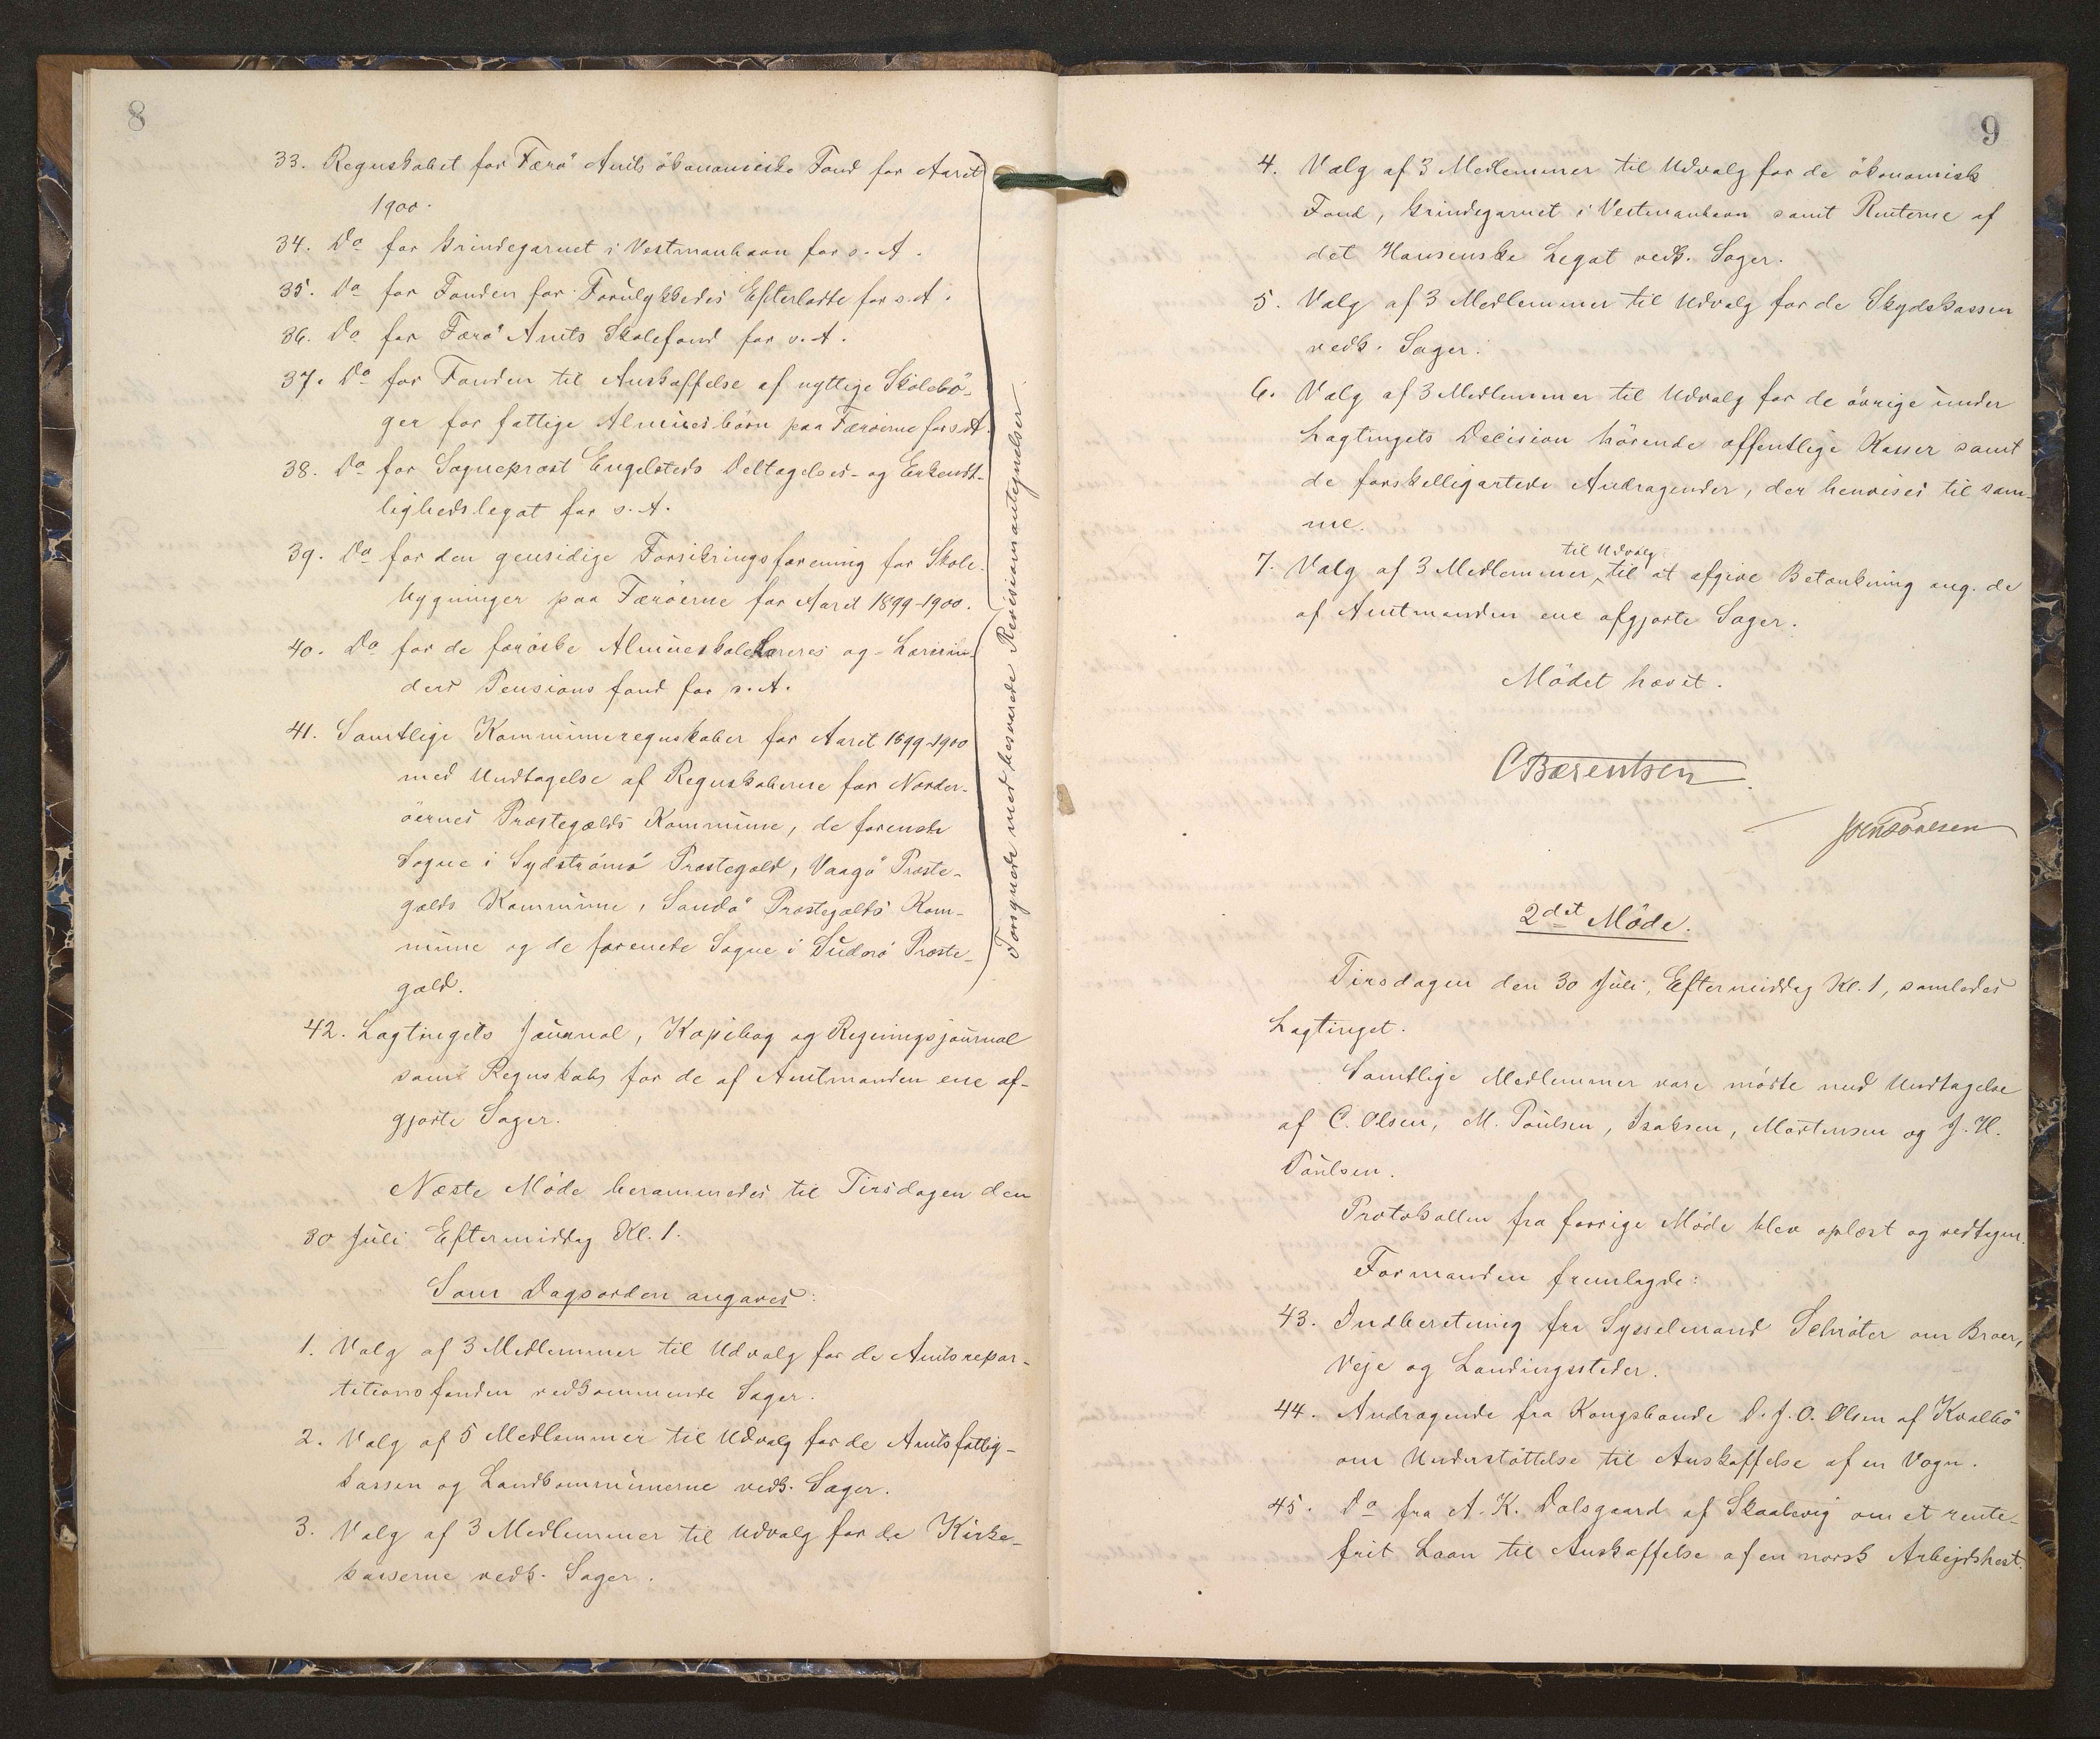 8
33. Regnskabet for Færö Amts ökonomiske Fond for Aaret
1900.
34. Do for Grindegarnet i Vestmanhavn for s. A.
35. Do for Fonden for Forulykkedes Efterladte for s. A.
36. Do for Færö Amts Skolefond for s. A.
37. Do for Fonden til Anskaffelse af nyttige Skolebö-
ger for fattige Almuesbörn paa Færöerne for s. A.
38. Do for Sognepræst Engelsteds Deltagelses- og Erkendt-
lighedslegat for s. A.
39. Do for den gensidige Forsikringsforening for Skole-
bygninger paa Færöerne for Aaret 1899-1900.
40. Do for de færöske Almueskolelæreres og -Lærerin-
ders Pensionsfond for s. A.
41. Samtlige Kommuneregnskaber for Aaret 1899-1900
med Undtagelse af Regnskaberne for Norder-
öernes Præstegælds Kommune, de forenede
Sogne i Sydströmö Præstegæld, Vaagö Præste-
gælds Kommune, Sandö Præstegælds Kom-
mune og de forenede Sogne i Suderö Præste-
gæld.
Forsynede med besvarede Revisionsantegnelser
42. Lagtingets Journal, Kopibog og Regningsjournal
samt Regnskab for de af Amtmanden ene af-
gjorte Sager.
Næste Möde berammedes til Tirsdagen den
30 Juli Eftermiddag Kl. 1.
Som Dagsorden angaves:
1. Valg af 3 Medlemmer til Udvalg for de Amtsrepar-
titionsfonden vedkommende Sager.
2. Valg af 5 Medlemmer til Udvalg for de Amtsfattig-
kassen og Landkommunerne vedk. Sager.
3. Valg af 3 Medlemmer til Udvalg for de Kirke-
kasserne vedk. Sager.
9
4. Valg af 3 Medlemmer til Udvalg for de ökonomisk
Fond, Grindegarnet i Vestmanhavn samt Renterne af
det Hansenske Legat vedk. Sager.
5. Valg af 3 Medlemmer til Udvalg for de Skydskassen
vedk. Sager.
6. Valg af 3 Medlemmer til Udvalg for de övrige under
Lagtingets Decision hörende offentlige Kasser samt
de forskelligartede Andragender, der henvises til sam-
me.
til Udvalg
7. Valg af 3 Medlemmer, til at afgive Betænkning ang. de
af Amtmanden ene afgjorte Sager.
Mödet hævet.
C Bærentsen
2det Möde.
Tirsdagen den 30 Juli, Eftermiddag Kl. 1, samledes
Lagtinget.
Samtlige Medlemmer vare mödte med Undtagelse
af C. Olsen, M. Poulsen, Isaksen, Mortensen og J. H.
Poulsen.
Protokollen fra forrige Möde blev oplæst og vedtagen.
Formanden fremlagde:
43. Indberetning fra Sysselmand Schröter om Broer,
Veje og Landingssteder.
44. Andragende fra Kongsbonde D. J. O. Olsen af Kvalbö
om Understöttelse til Anskaffelse af en Vogn.
45. Do fra A. K. Dalsgaard af Skaalevig om et rente-
frit Laan til Anskaffelse af en norsk Arbejdshest.